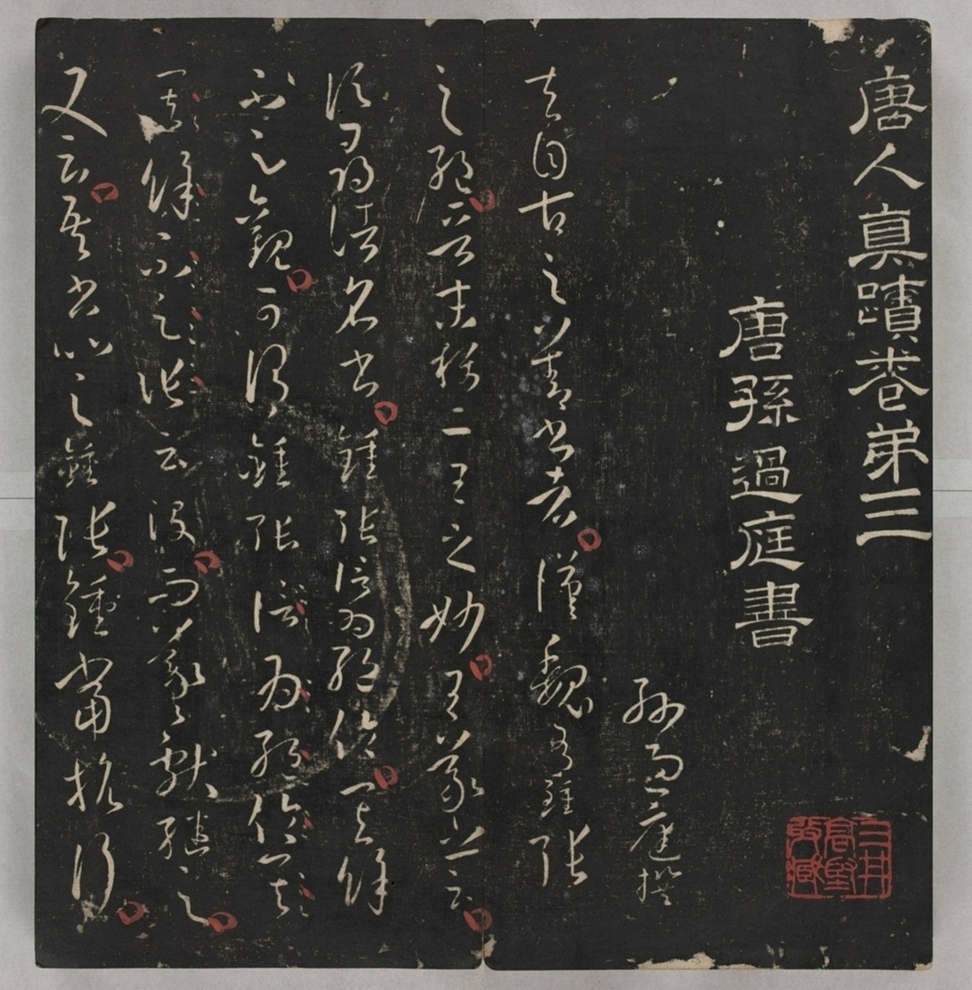 唐人真蹟卷弟三
唐孫過庭書
孫過庭撰
夫自古之善書者漢魏有鍾張
之絕晉末稱二王之妙王羲之云
頃尋諸名書鍾張信為絕倫其餘
不足觀可謂鍾張信為絕倫其
其餘不足張云沒而羲獻繼之
又云吾書比之鍾張鍾當抗行
三井
高堅